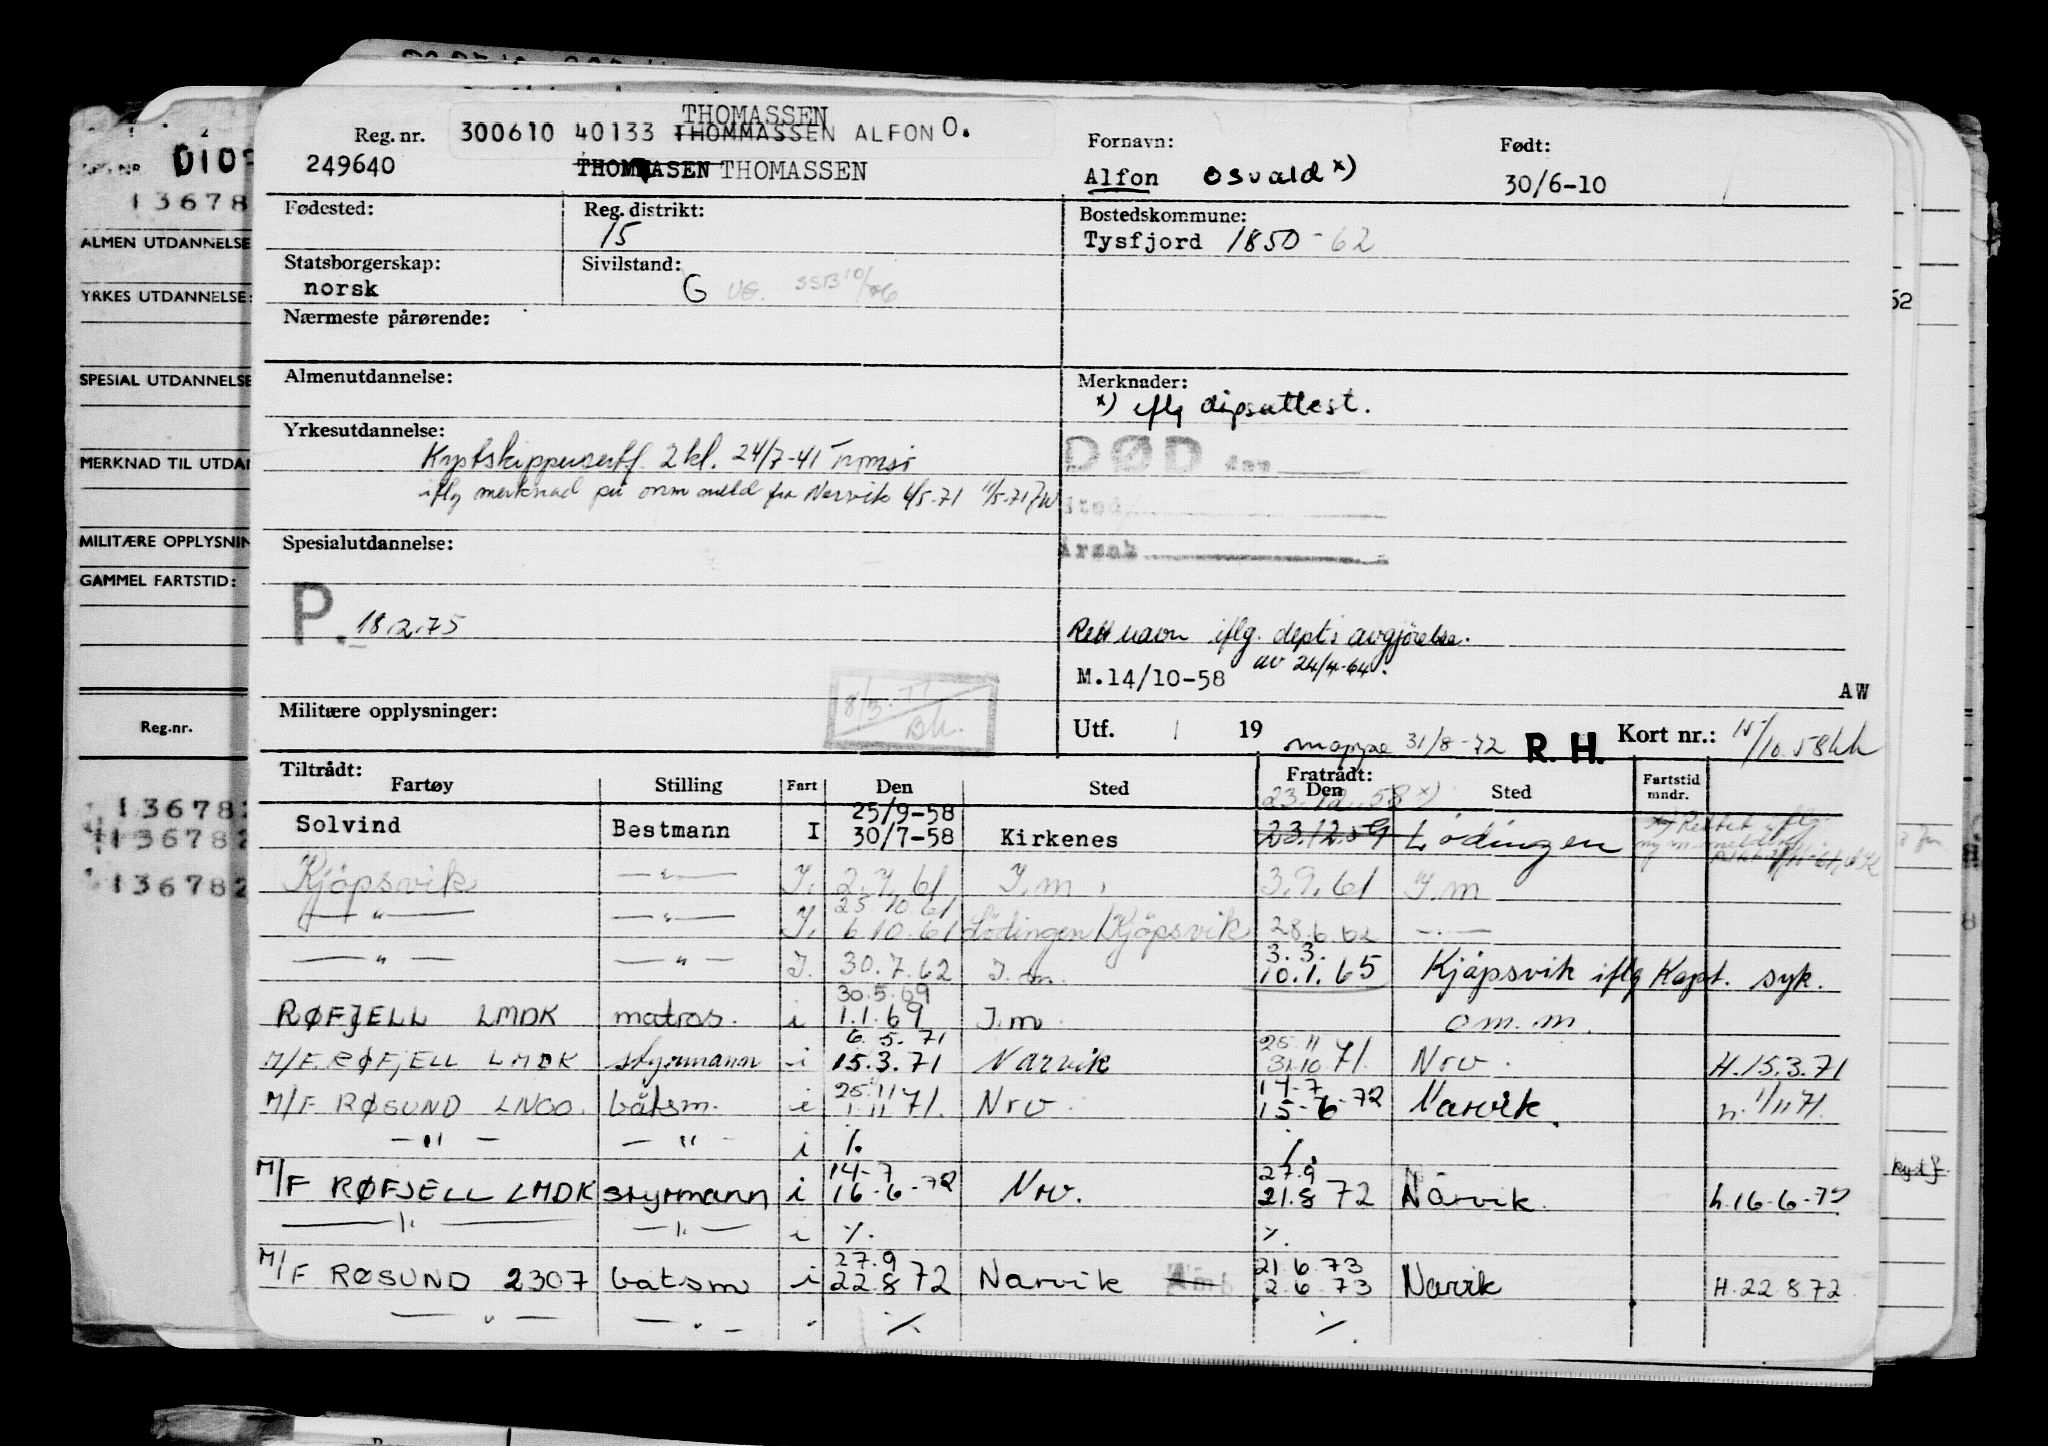 THOMASSEN
Reg. nr. 300610 40133 THOMMASSEN ALFON O. Fornavn: Født:
249640 THOMMASEN THOMASSEN Alfon Osvald x) 30/6-10
D10
13678
Fødested: Reg. distrikt: Bostedskommune:
15 Tysfjord 1850-62
ALMEN UTDANNELSE
Statsborgerskap: Sivilstand:
norsk G UG. SSB 10/76
YRKES UTDANNELSE:
Nærmeste pårørende:
SPESIAL UTDANNELSE
Almenutdannelse: Merknader:
x) iflg dåpsattest.
Yrkesutdannelse:
Kystskippersertf. 2 kl. 24/7-41 Tromsø DØD den
MERKNAD TIL UTDAN
iflg merknad på onm meld fra Narvik 6/5-71 11/5-71 Sted
Årsak
MILITÆRE OPPLYSNIN
Spesialutdannelse:
GAMMEL FARTSTID:
P. 18.2.75
Rett navn iflg. dept's avgjørelse.
av 24/4-64.
M.14/10-58 AW
Militære opplysninger: 8/3-77 Bk.
Utf. 19 mappe 31/8-72 R. H. Kort nr.: 15/10.58
Reg.nr.
Tiltrådt: Fratrådt:
Fartøy Stilling Fart Den Sted Den Sted Fartstid mndr.
25/9-58 23.12.58 x)
Solvind Bestmann I 30/7-58 Kirkenes 23.12.59 Lødingen
Kjøpsvik —"— I. 2.7.61 I.m. 3.9.61 I.m
25.10.61
—"— —"— I. 6.10.61 Lødingen/Kjøpsvik 28.6.62 —.—
3.3.
—"— —"— I. 30.7.62 I.m. 10.1.65 Kjøpsvik iflg Kapt. syk.
30.5.69
RØFJELL LMDK matros. i 1.1.69 I.m om.m.
6.5.71 25.11
M/F RØFJELL LMDK styrmann i 15.3.71 Narvik 31.10 71. Nrv. H.15.3.71
25.11 14-7
M/F RØSUND LNGO. båtsm. i 1.11 71. Nrv. 15-6-72 Narvik. h. 1/11 71.
—"— —"— i %. %.
14-7 27.9
M/F RØFJELL LMDK styrmann i 16-6-72 Nrv. 21.8 72 Narvik. h.16-6-72
—"— —"— i %. %.
27.9 21.6.73
M/F RØSUND 2307 båtsm i 22.8 72 Narvik 2.6.73 Narvik H.22 8 72
—"— —"— " % %.
136782
136782
136782